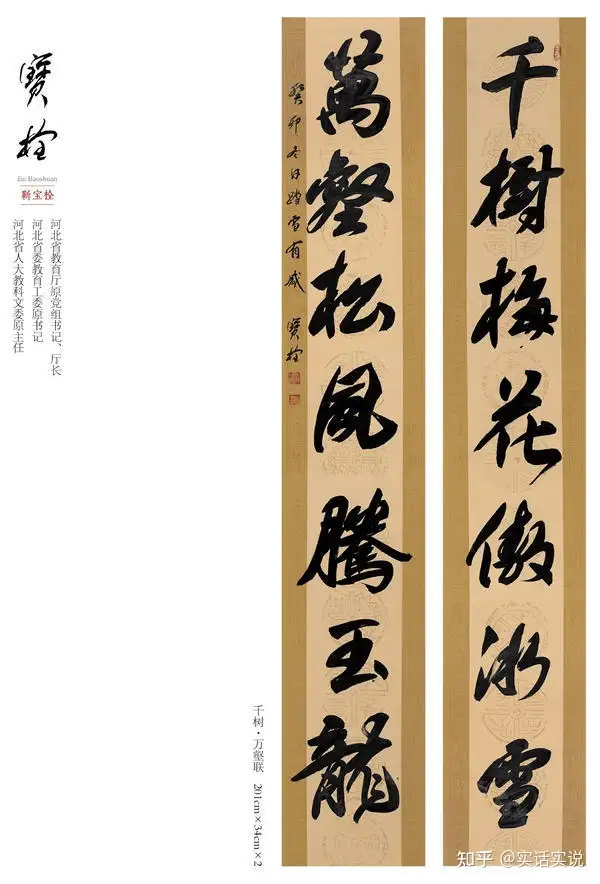 千樹梅花傲冰雪
萬壑松風騰玉龍
癸卯冬日踏雪有感 寶栓
寶栓
Jin Baoshuan
靳宝栓
河北省教育厅原党组书记、厅长
河北省委教育工委原书记
河北省人大教科文委原主任
千树·万壑联 201cm×34cm×2
知乎 @实话实说